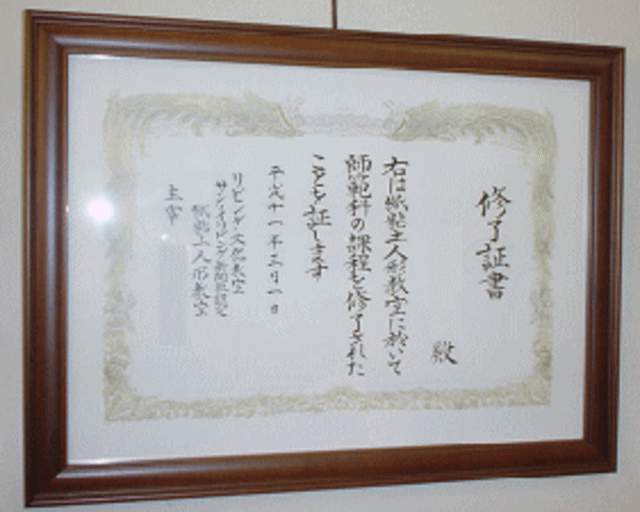 修了証書
殿
右は紙粘土人形教室に於いて
師範科の課程を修了された
ことを証します
平成十一年三月一日
リビング文化教室
サンケイリビング新聞社認定
紙粘土人形教室
主宰